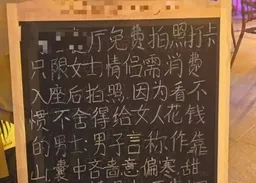 厅免费拍照打卡
只限女士,情侣需消费
入座后拍照,因为看不
惯不舍得给女人花钱
的男士:男子言称作靠
山,囊中吝啬意偏寒,甜